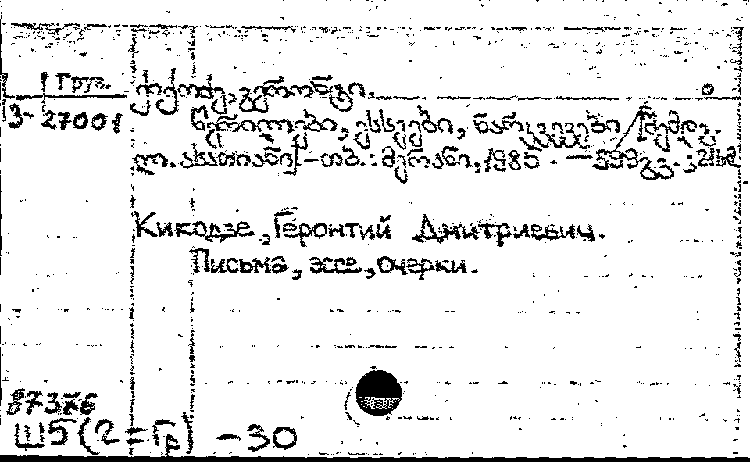 Груз.
3-27001
ქიქოძე, გერონტი.
წერილები, ესსეები, ნარკვევები /შემდგ.
ლ. ასათიანი/.-თბ.: მერანი, 1985. — 599გვ.;
Кикодзе, Геронтий Дмитриевич.
Письма, эссе, очерки.
87376
Ш5(2=Гр) -30